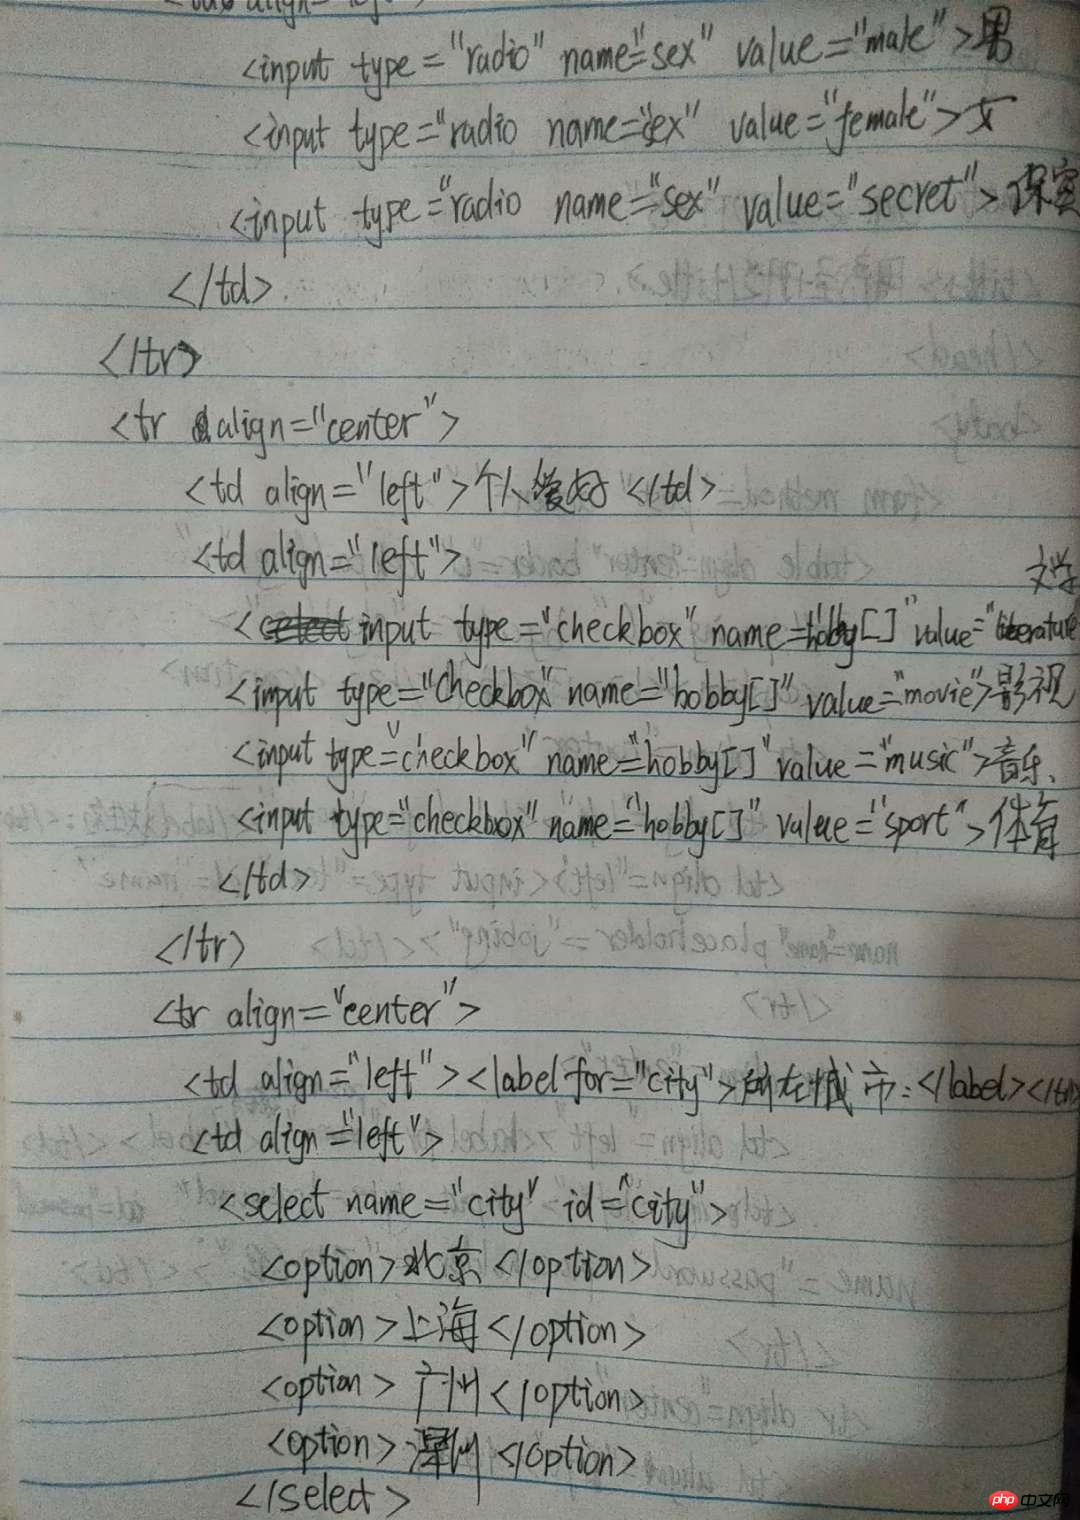 <td align="left">
<input type="radio" name="sex" value="male">男
<input type="radio name="sex" value="female">女
<input type="radio name="sex" value="secret">保密
</td>
</tr>
<tr align="center">
<td align="left">个人爱好</td>
<td align="left">
文学
<input type="checkbox" name="hobby[]" value="literature
<input type="checkbox" name="hobby[]" value="movie">影视
<input type="checkbox" name="hobby[]" value="music">音乐
<input type="checkbox" name="hobby[]" value="sport">体育
</td>
</tr>
<tr align="center">
<td align="left"><label for="city">所在城市:</label></td>
<td align="left">
<select name="city" id="city">
<option>北京</option>
<option>上海</option>
<option>广州</option>
<option></option>
</select>
php 中文网